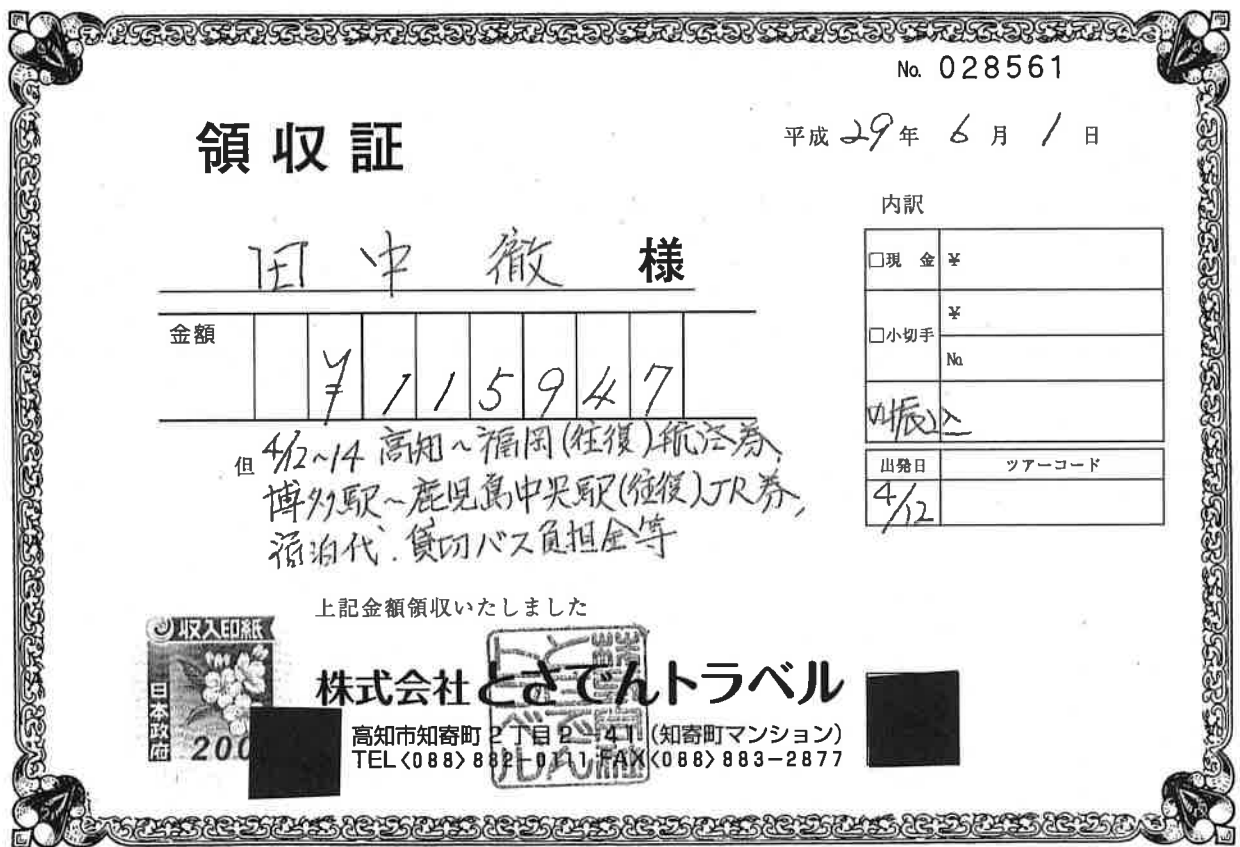 No. 028561
領収証
平成 29年 6月 1日
田中 徹 様
金額 ¥115947
但 4/12~14 高知~福岡(往復)航空券、
博多駅~鹿児島中央駅(往復)JR券,
宿泊代、貸切バス負担金等
内訳
□現 金 ¥
□小切手 ¥
No.
振込
出発日 ツアーコード
4/12
上記金額領収いたしました
収入印紙
日本政府
200
株式会社とさでんトラベル
高知市知寄町2丁目2-41(知寄町マンション)
TEL<088>882-0111 FAX<088>883-2877